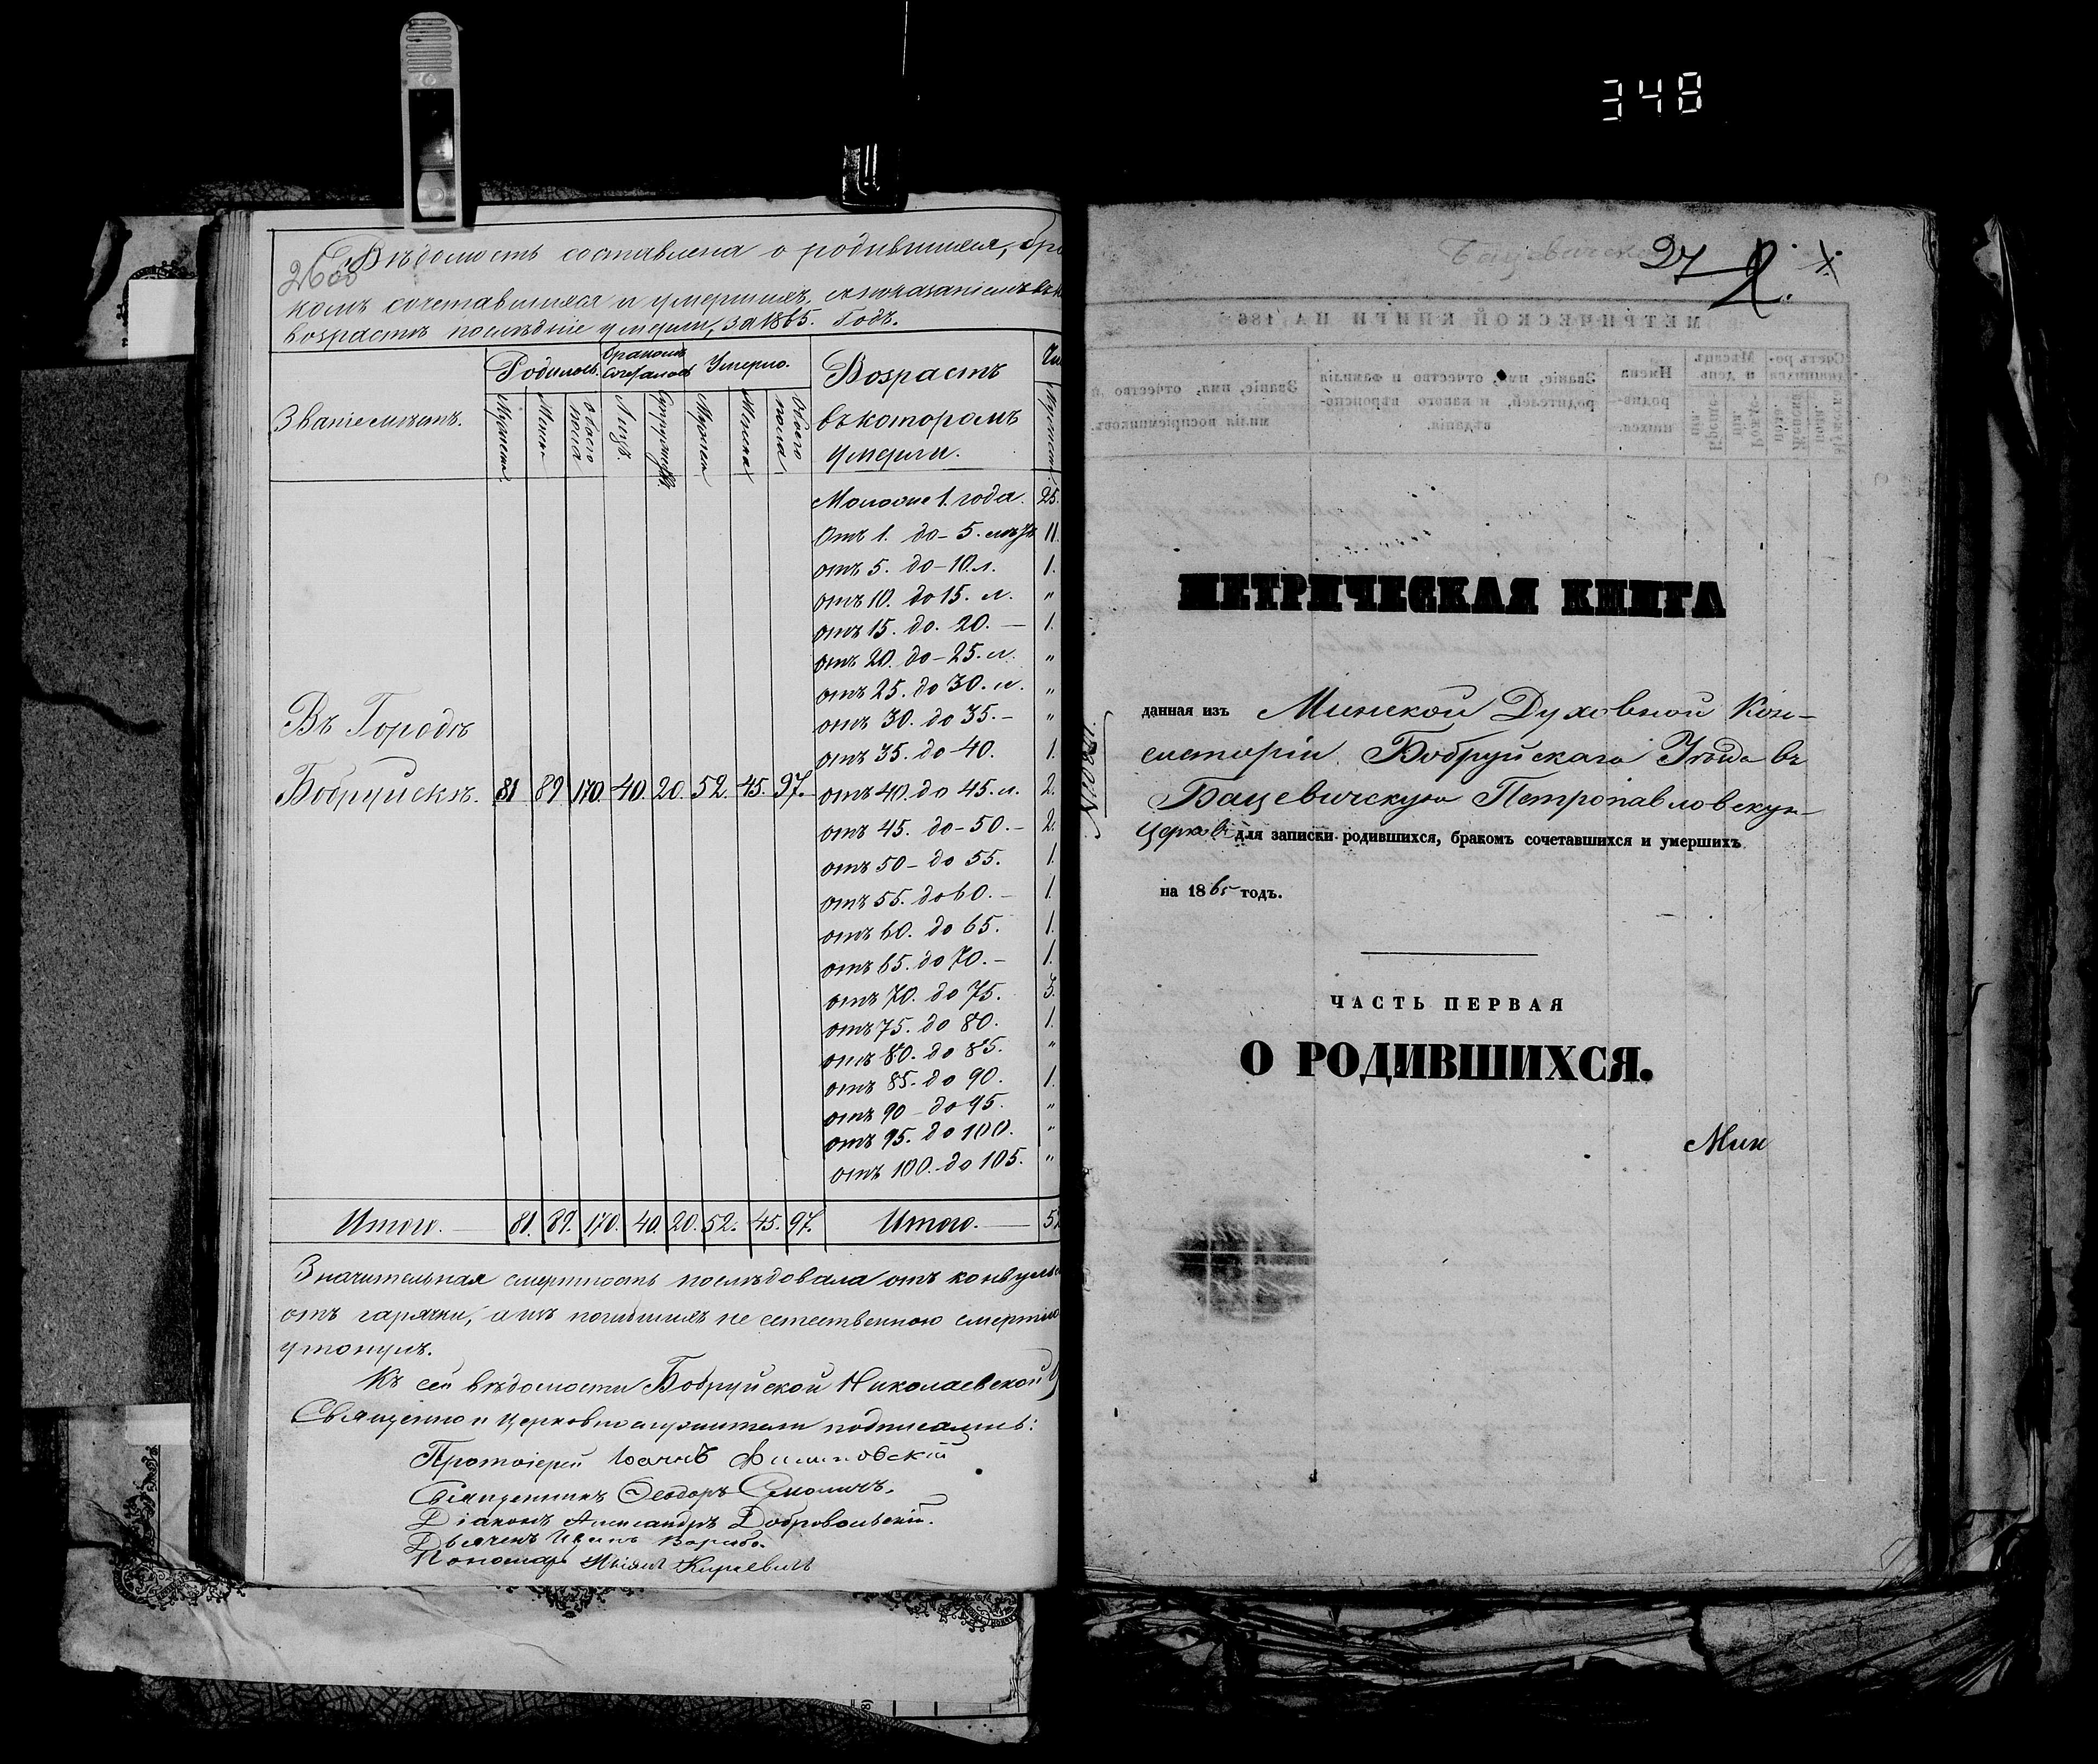 348
Вѣдомость составлена о родившихся, бра
комъ сочетавшихся и умершихъ, съ показаніемъ въ
возрастѣ послѣдніе умерли, за 1865. Годъ.
Званіе мѣстъ.
Родилось.
Бракомъ сочеталось
Умерло.
Возрастъ
въ которомъ
умерли.
Мужеска
Женска
Обоего пола
Лицъ.
Супружествъ
Мужеска
Женска
Обоего пола
Моложе 1. года. 25.
Отъ 1. до 5. лѣтъ 11.
отъ 5. до 10. л. 1.
отъ 10. до 15. л. "
отъ 15. до. 20. — 1.
отъ 20. до 25. л. "
отъ 25. до 30. л. "
отъ 30. до 35. — "
отъ 35. до 40. 1.
Въ Городѣ
Бобруйскѣ. 81 89 170. 40. 20. 52. 45. 97. отъ 40. до 45. л. 2.
отъ 45. до 50. — 2.
отъ 50 — до 55. 1.
отъ 55. до 60. — 1.
отъ 60. до 65. 1.
отъ 65. до 70. — 1.
отъ 70. до 75. 3.
отъ 75. до 80. 1.
отъ 80. до 85. "
отъ 85. до 90. 1.
отъ 90 — до 95. "
отъ 95. до 100. "
отъ 100. до 105. "
Итого. — 81. 89. 170. 40. 20. 52. 45. 97. Итого. — 52
Значительная смертность послѣдовала отъ конвульс
отъ гарячки, а изъ погибшихъ не естественною смертію
утонулъ.
Къ сей вѣдомости Бобруйской Николаевской
Священно и церковнослужители подписались:
Протоіерей Іоаннъ
Священникъ Ѳеодоръ
Діаконъ Александръ Добровольскій.
Дьячекъ Иванъ
Пономарь
27
МЕТРИЧЕСКОЙ КНИГИ НА 186
МЕТРИЧЕСКАЯ КНИГА
данная изъ Минской Духовной Кон-
систоріи Бобруйскаго Уѣзда въ
Бацевичскую Петропавловскую
Церковь для записки родившихся, бракомъ сочетавшихся и умершихъ
на 1865 годъ.
ЧАСТЬ ПЕРВАЯ
О РОДИВШИХСЯ.
Мин